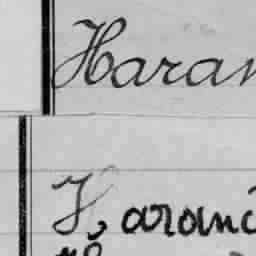 Haran
Haranc